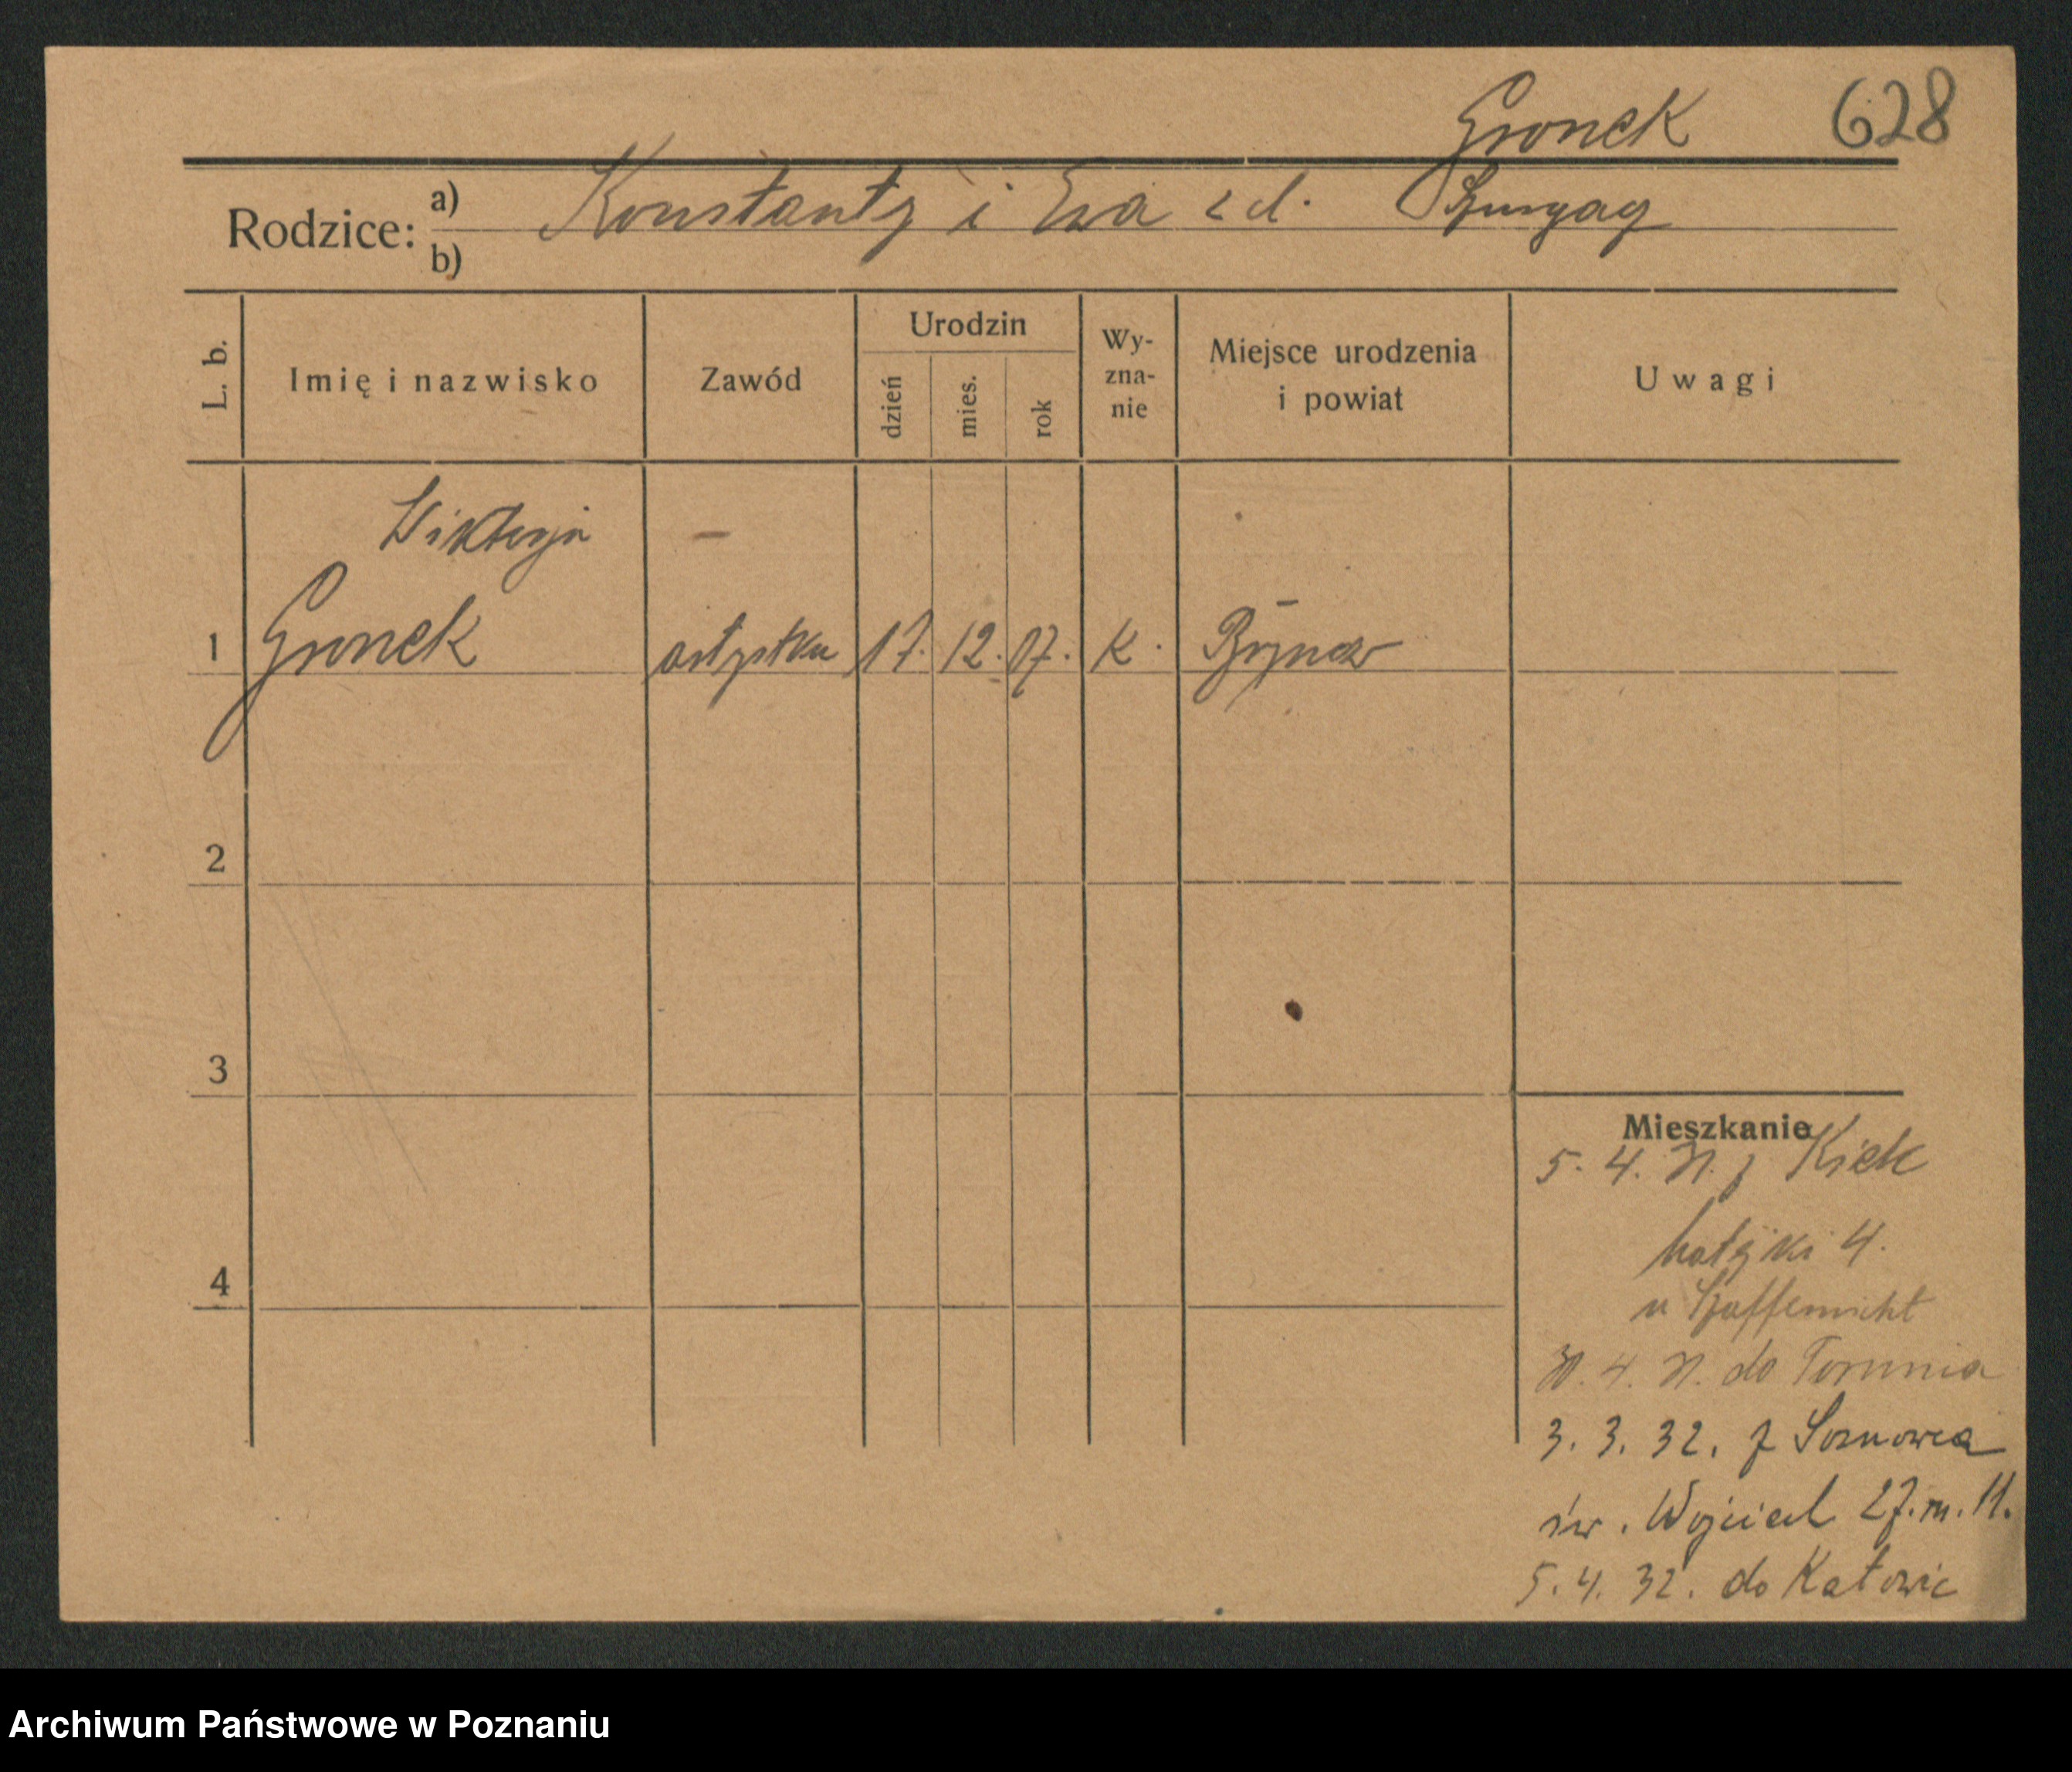 Gronek 628
Rodzice: a) b) Konstanty i Ewa z d.
L. b.
Imię i nazwisko
Zawód
Urodzin
dzień
mies.
rok
Wy-
zna-
nie
Miejsce urodzenia
i powiat
Uwagi
Wiktorja
1 Gronek artystka 17. 12. 07. K. Brynów
2
3
4
Mieszkanie
5. 4. 31. z Kielc
Ratajki 4.
u
30. 4. 31. do Torunia
3. 3. 32. z Sosnowca
św. Wojciech 27. m. 11.
5. 4. 32. do Katowic
Archiwum Państwowe w Poznaniu